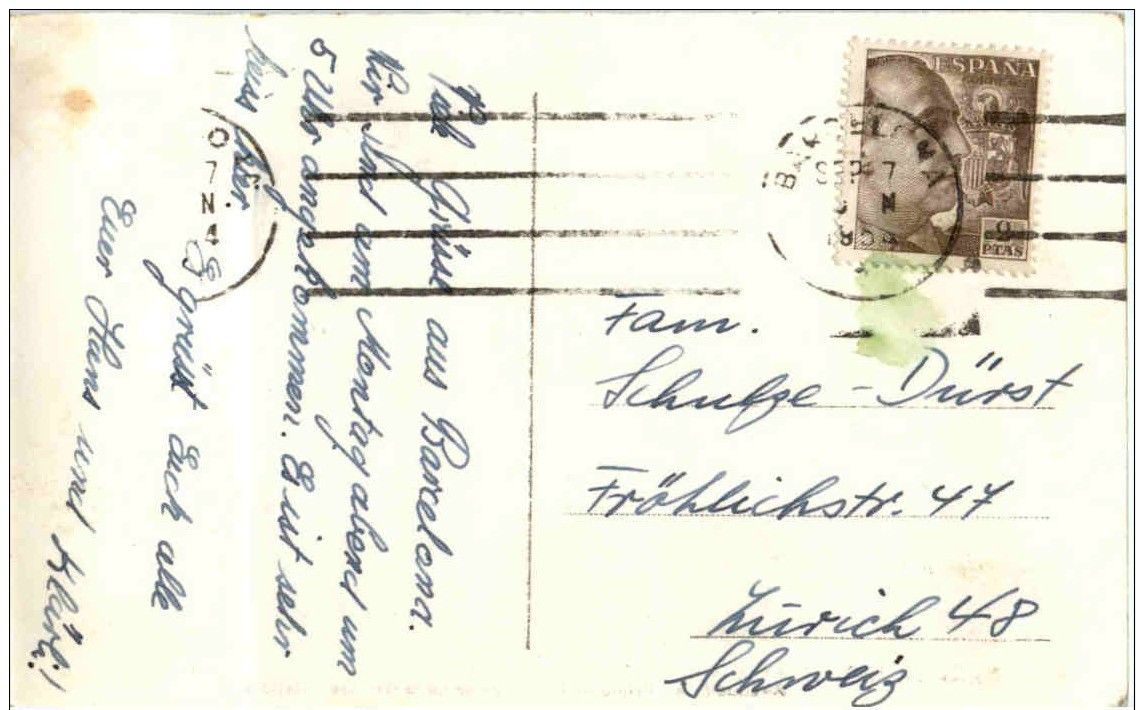 Viele Grüsse aus Barcelona.
Wir sind am Montag abend um
5 Uhr angekommen. Es ist sehr
heiss hier
Es grüsst Euch alle
Euer Hans und Kläri!
ESPAÑA
2
PTAS
Fam.
Schulze-Dürst
Fröhlichstr. 47
Zürich 48
Schweiz